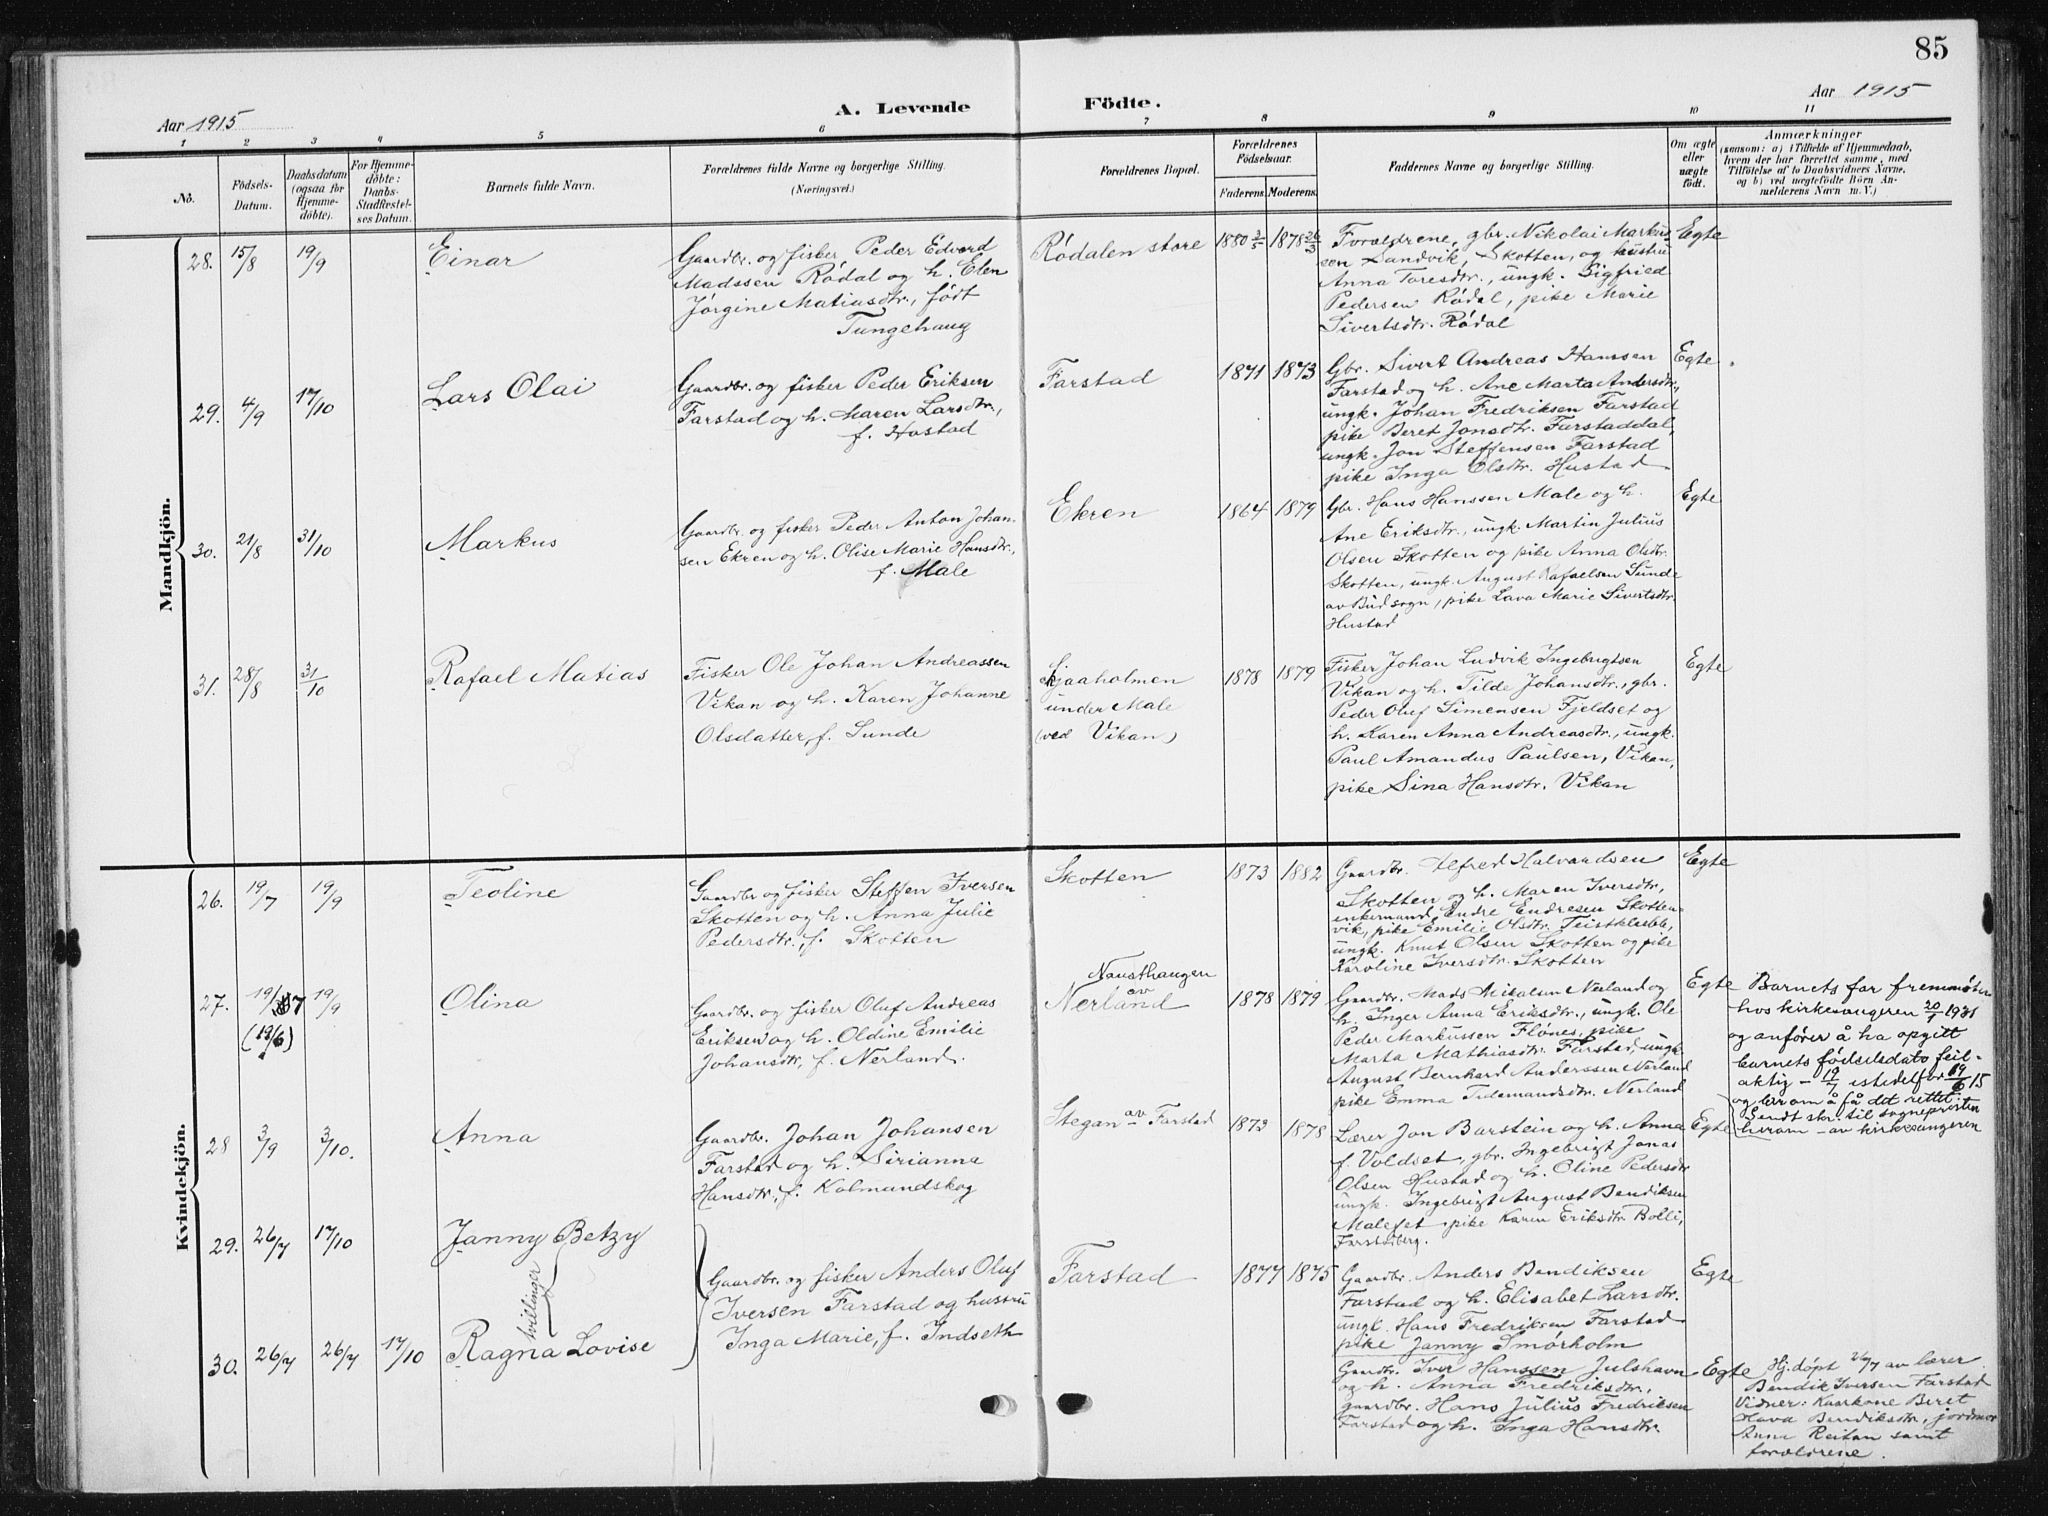 85
Aar 1915
A. Levende Födte.
Aar 1915
1 2 3 4 5 6 7 8 9 10 11
No.
Födsels-
Datum.
Daabsdatum
(ogsaa for
Hjemme-
döbte).
For Hjemme-
döbte:
Daabs-
Stadfæstel-
ses Datum.
Barnets fulde Navn.
Forældrenes fulde Navne og borgerlige Stilling.
(Næringsvei.)
Forældrenes Bopæl.
Forældrenes
Födselsaar.
Faderens. Moderens.
Faddernes Navne og borgerlige Stilling.
Om ægte
eller
uægte
födt.
Anmærkninger
(saasom: a) i Tilfælde af Hjemmedaab,
hvem der har forrettet samme, med
Tilföielse af to Daabsvidners Navne,
og b) ved uægtefödte Börn An-
melderens Navn m. V.)
Mandkjön.
28. 15/8 19/9 Einar
Gaardbr. og fisker Peder Edvard
Madssen Rödal og h. Elen
Jörgine Matiasdtr., født
Tungehaug
Rödalen store
1880 3/5 1878 26/3
Forældrene, gbr. Nikolai Markus-
sen Sandvik, Skotten, og hustru
Anna Toresdtr., ungk. Sigfried
Pedersen Rödal, pike Marie
Sivertsdtr. Rödal
Egte
29. 4/9 17/10 Lars Olai
Gaardbr. og fisker Peder Eriksen
Farstad og h. Maren Larsdtr.,
f. Hustad
Farstad
1871 1873
Gbr. Sivert Andreas Hanssen
Farstad og h. Ane Marta Andersdtr.,
ungk. Johan Fredriksen Farstad
pike Beret Jonsdtr. Farstaddal,
ungk. Jon Steffensen Farstad
pike Inga Olsdtr. Hustad
Egte
30. 21/8 31/10 Markus
Gaardbr. og fisker Peder Anton Johan-
sen Ekren og h. Olise Marie Hansdtr.,
f. Male
Ekren
1864 1879
Gbr. Hans Hanssen Male og h.
Ane Eriksdtr., ungk. Martin Julius
Olsen Skotten og pike Anna Olsdtr.
Skotten, ungk. August Rafaelsen Sunde
av Bud sogn, pike Lava Marie Sivertsdtr.
Hustad
Egte
31. 28/8 31/10 Rafael Matias
Fisker Ole Johan Andreassen
Vikan og h. Karen Johanne
Olsdatter, f. Sunde
Skjaaholmen
under Male
(ved Vikan)
1878 1879
Fisker Johan Ludvik Ingebrigtsen
Vikan og h. Tilde Johansdtr., gbr.
Peder Oluf Simensen Fjeldset og
h. Karen Anna Andreasdtr., ungk.
Paul Amandus Paulsen, Vikan,
pike Sina Hansdtr. Vikan
Egte
Kvindekjön.
26. 19/7 19/9 Teoline
Gaardbr og fisker Steffen Iversen
Skotten og h. Anna Julie
Pedersdtr., f. Skotten
Skotten
1873 1882
Gaardbr. Alfred Halvardsen
Skotten og h. Maren Iversdtr.,
enkemand Endre Endresen Skotten-
vik, pike Emilie Olsdtr. Teistklubb,
ungk. Knut Olsen Skotten og pike
Karoline Iversdtr. Skotten
Egte
27. 19/7 19/9 Olina
(19/6)
Gaardbr. og fisker Oluf Andreas
Eriksen og h. Oldine Emilie
Johansdtr, f. Nerland.
Nausthaugen
av
Nerland
1878 1879
Gaardbr. Mads Mikalsen Nerland og
h. Inger Anna Eriksdtr., ungk. Ole
Peder Markussen Flönes, pike
Marta Mathiasdtr. Farstad, ungk
August Bernhard Anderssen Nerland
pike Emma Tidemandsdtr. Nerland
Egte
Barnets far fremmøter
hos kirkesangeren 20/1 1931
og anfører å ha opgitt
barnets fødselsdato feil-
aktig – 19/7 istedetfor 19/6 15
og ber om å få det rettet.
Sendt skr. til sogneprosten
herom – av kirkesangeren
28 3/9 3/10. Anna
Gaardbr. Johan Johansen
Farstad og h. Sirianna
Hansdtr., f. Kolmundskog
Stegan av Farstad
1873 1878
Lærer Jon Barstein og h. Anna
f. Voldset, gbr. Ingebrigt Jonas
Olsen Hustad og h. Oline Pedersdtr
ungk. Ingebrigt August Bendiksen
Malefet, pike Karen Eriksdtr. Bolli,
Farstadberg.
Egte
29. 26/7 17/10 Janny Betzy
tvillinger
30. 26/7 26/7 17/10 Ragna Lovise
Gaardbr. og fisker Anders Oluf
Iversen Farstad og hustru
Inga Marie, f. Indseth
Farstad
1877 1875
Gaardbr. Anders Bendiksen
Farstad og h. Elisabet Larsdtr.
ungk. Hans Fredriksen Farstad
pike Janny Smörholm
Egte
Gaardbr. Iver Hanssen Julshavn
og h. Anna Fredriksdtr.,
gaardbr. Hans Julius Fredriksen
Farstad og h. Inga Hansdtr.
Egte
Hj.döpt 26/7 av lærer
Bendik Iversen Farstad
Vidner: Kaarkone Beret
Olava Bendiksdtr., jordmor
Anna Reitan samt
forældrene.